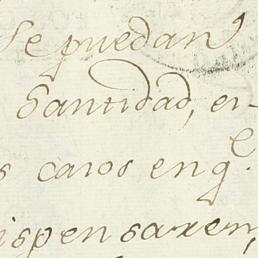 se puedan
Santidad, en-
s casos en q.e
ispensaren,